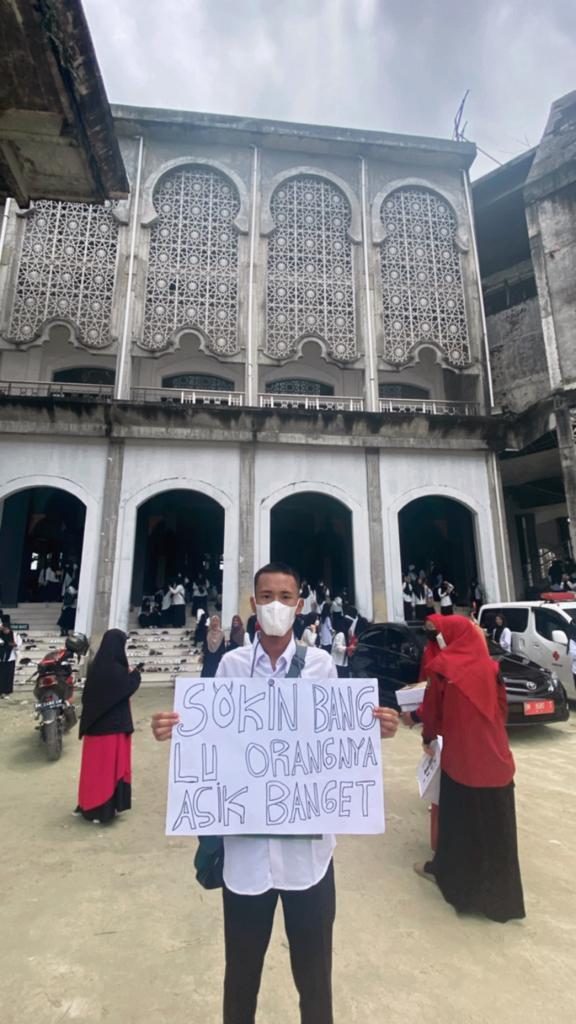 SOKIN BANG
LU ORANGNYA
ASIK BANGET